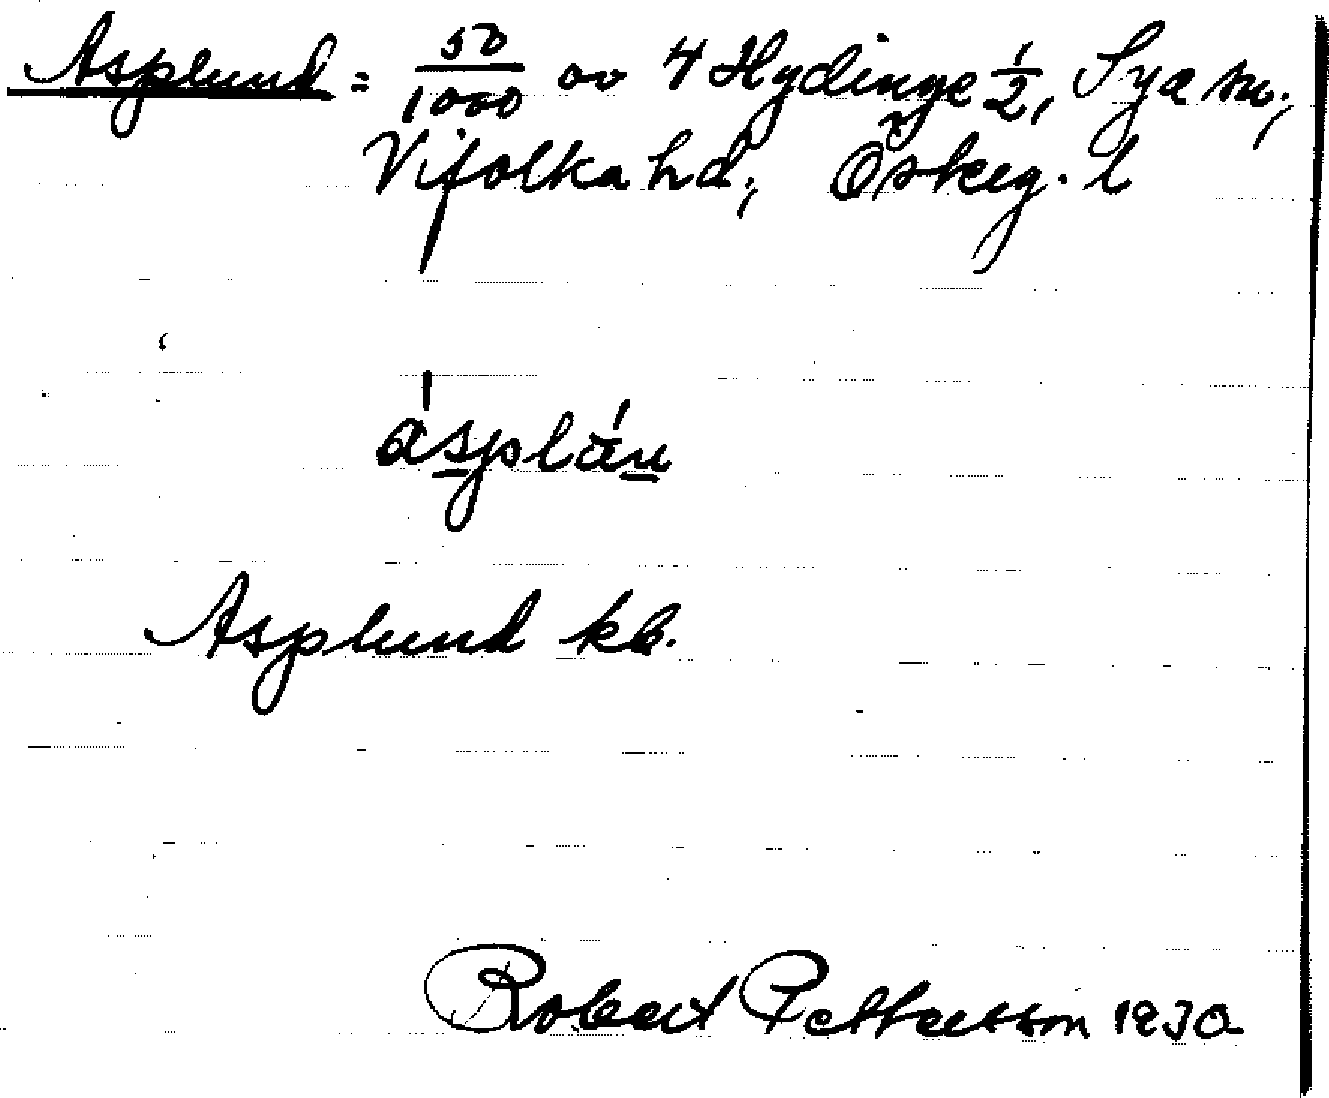 Asplund = 50/1000 av 4 Hydinge 1/2, Sya sn.,
Vifolka hd., Österg. l
ásplán
Asplund kb.
Robert Pettersson 1930